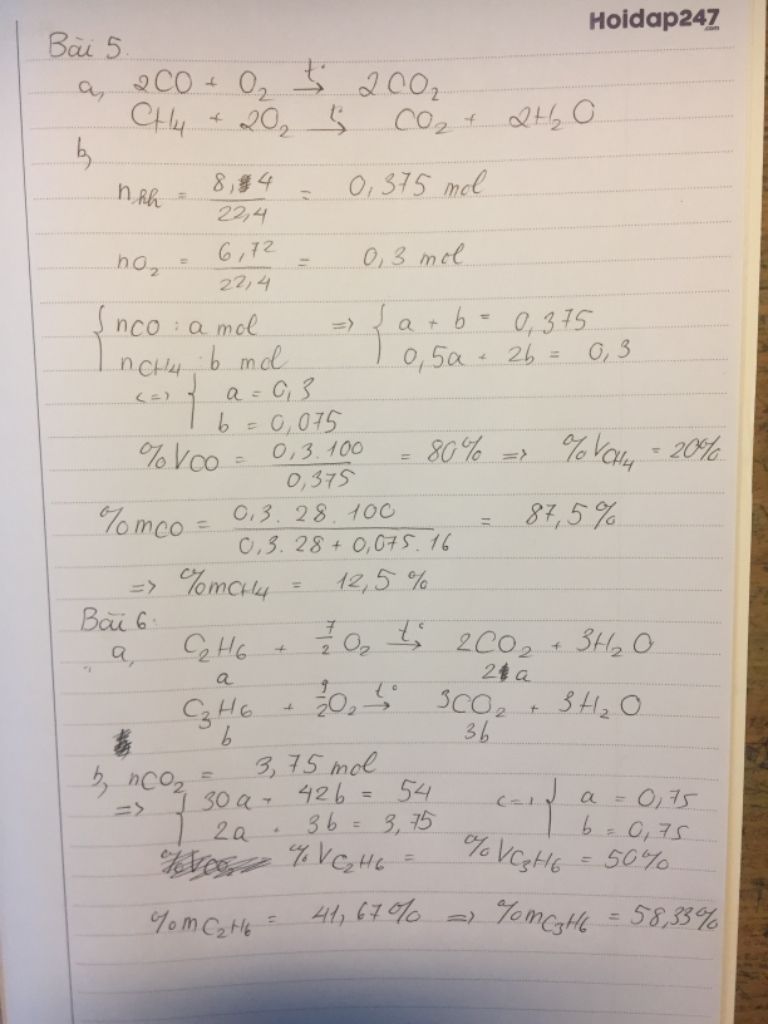 Hoidap247
.com
Bài 5.
a, 2CO + O₂ →(t°) 2CO₂
CH₄ + 2O₂ →(t°) CO₂ + 2H₂O
b,
n_hh = 8,4/22,4 = 0,375 mol
nO₂ = 6,72/22,4 = 0,3 mol
{ nCO : a mol => { a + b = 0,375
nCH₄ : b mol 0,5a + 2b = 0,3
<=> { a = 0,3
b = 0,075
%VCO = 0,3.100/0,375 = 80% => %VCH₄ = 20%
%mCO = 0,3.28.100/0,3.28 + 0,075.16 = 87,5%
=> %mCH₄ = 12,5%
Bài 6.
a, C₂H₆ + 7/2 O₂ →(t°) 2CO₂ + 3H₂O
a 2a
C₃H₆ + 9/2 O₂ →(t°) 3CO₂ + 3H₂O
b 3b
b, nCO₂ = 3,75 mol
=> { 30a + 42b = 54 <=> { a = 0,75
2a + 3b = 3,75 b = 0,75
%VC₂H₆ = %VC₃H₆ = 50%
%mC₂H₆ = 41,67% => %mC₃H₆ = 58,33%